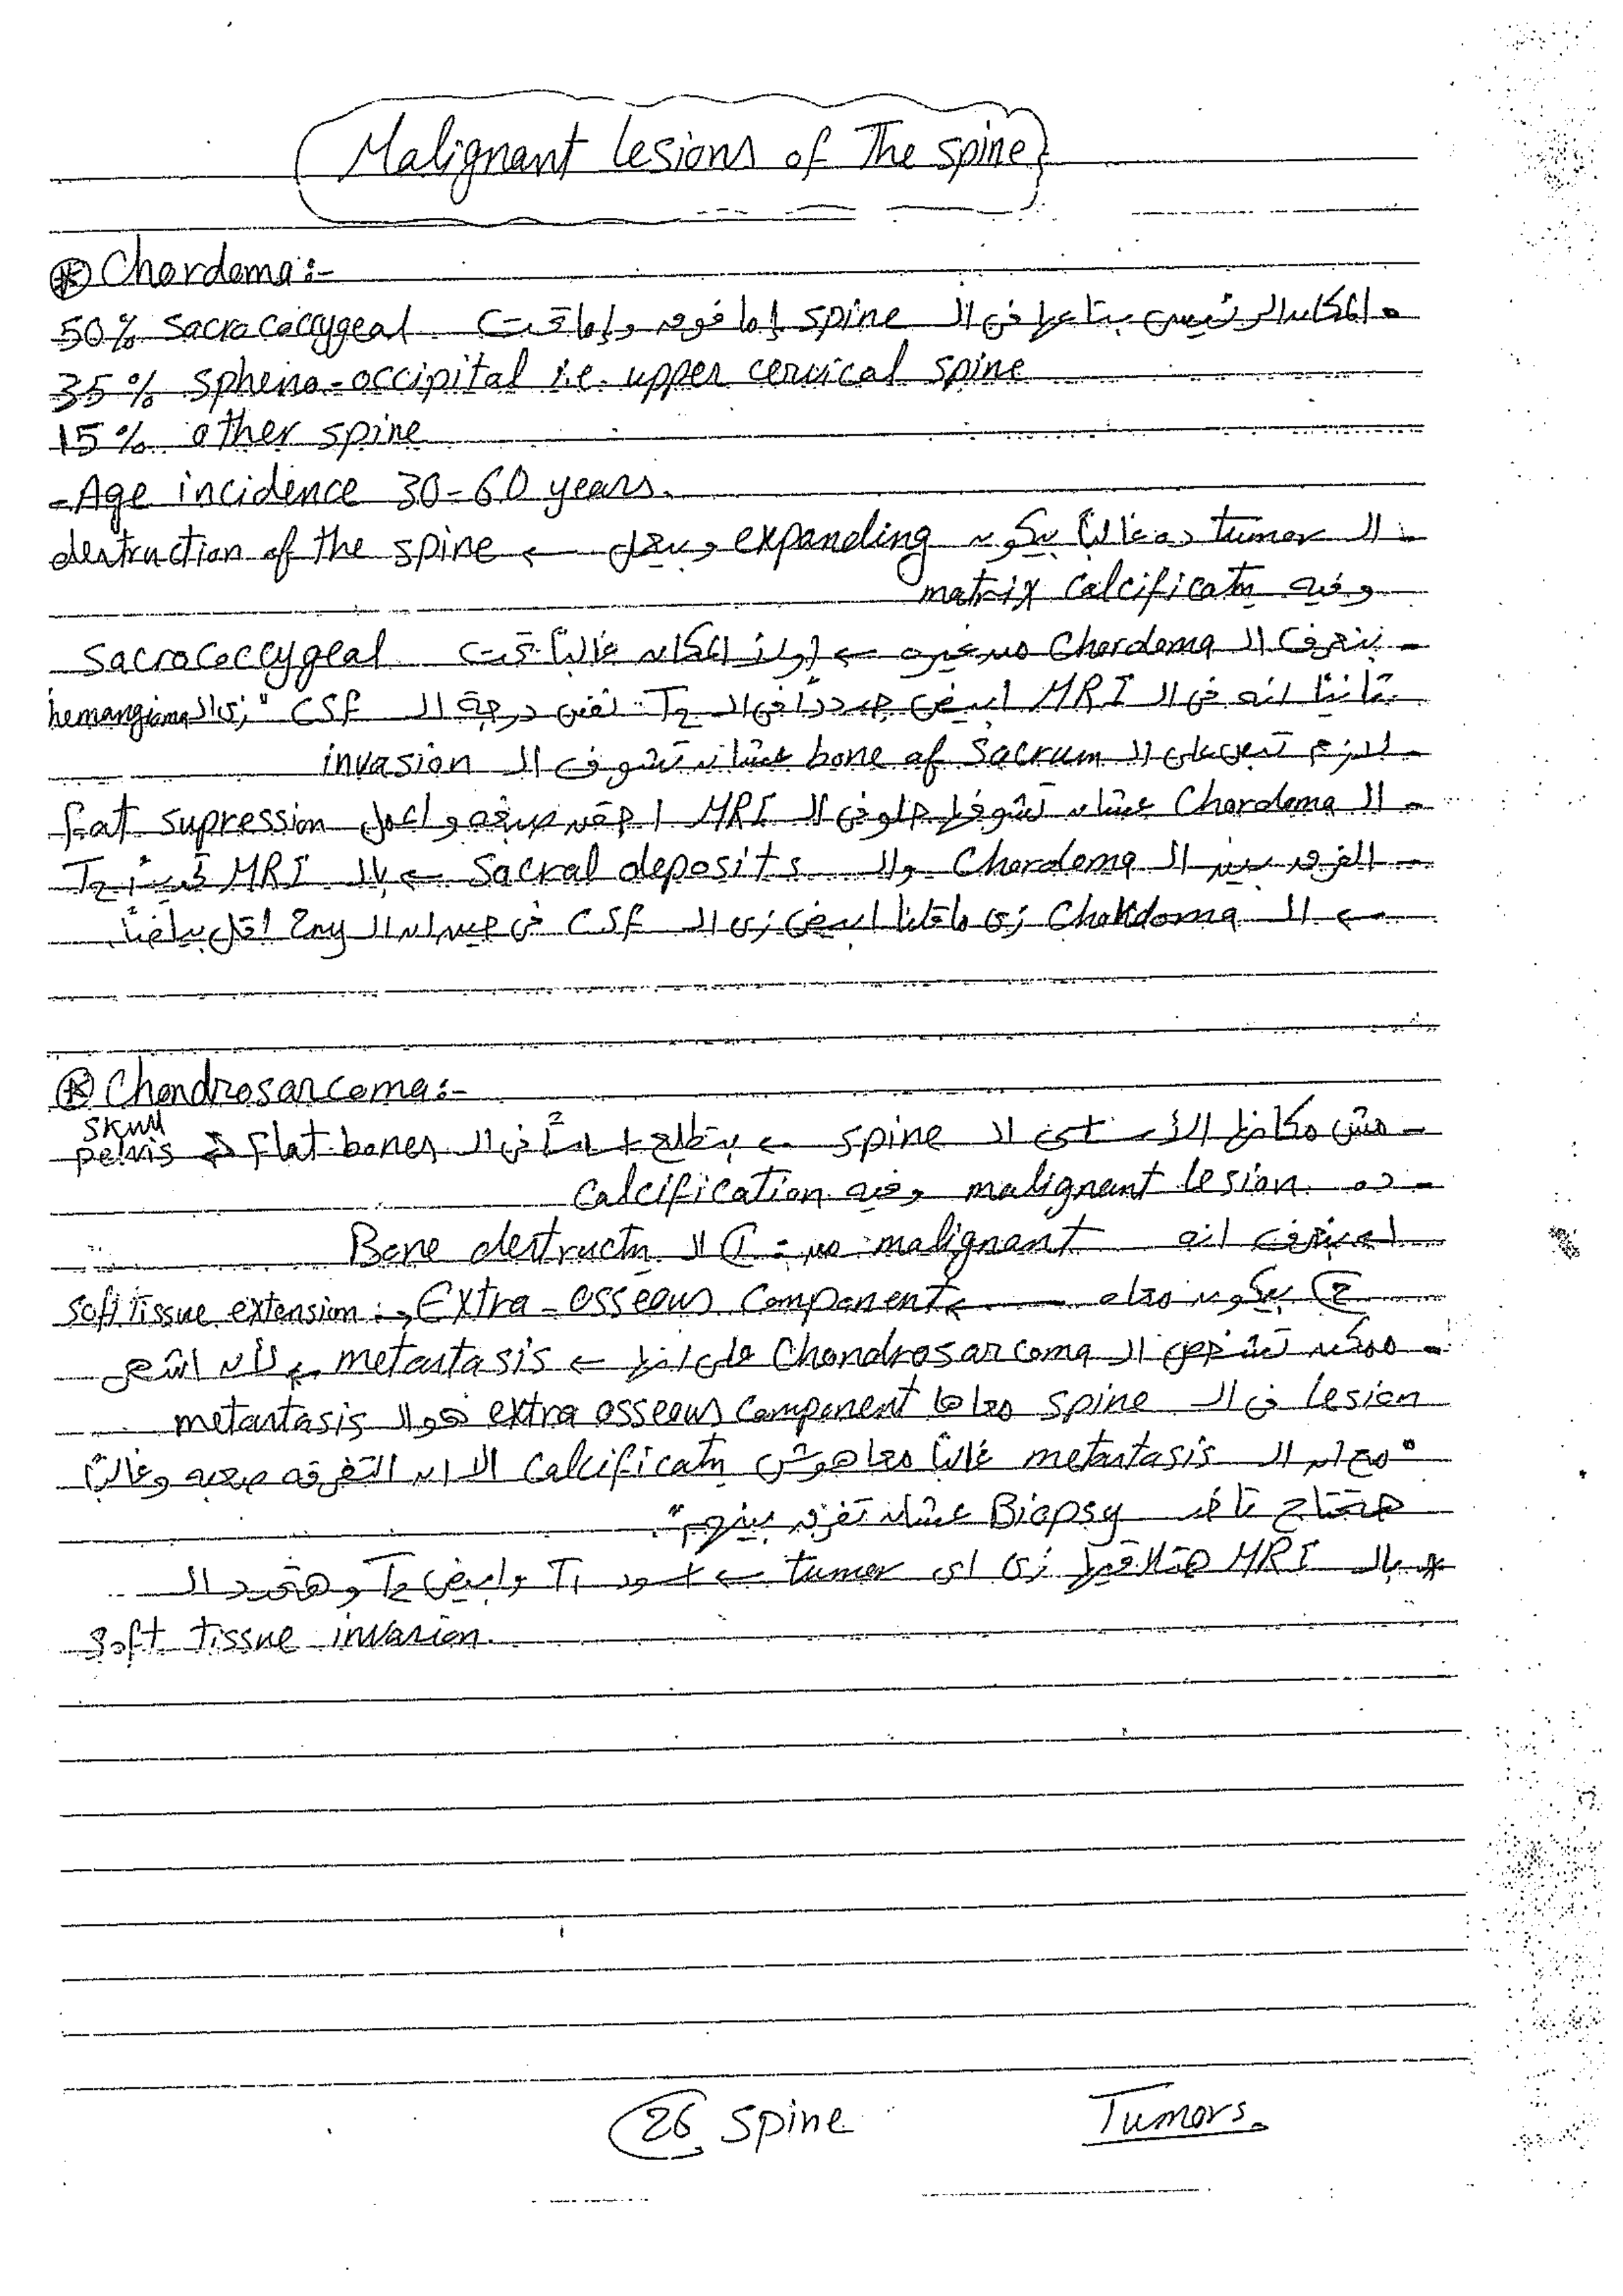 Malignant lesions of The spine
⊛ Chordoma:-
• المكان الرئيسى بتاعها فى الـ spine إما فوق وإما تحت 50% sacrococcygeal
35% spheno-occipital i.e. upper cervical spine
15% other spine
- Age incidence 30-60 years.
- الـ tumor ده غالباً بيكون expanding وبيعمل ← destruction of the spine
وفيه matrix calcificatn
- بنعرف الـ Chordoma من غيره ← أولاً المكان غالباً تحت sacrococcygeal
ثانياً انه فى الـ MRI ابيض جداً فى الـ T2 نفس درجة الـ CSF "زى الـ hemangioma
- لازم تبص على الـ bone of Sacrum عشان تشوف الـ invasion
- الـ Chordoma عشان تشوفها حلو فى الـ MRI احقن صبغه واعمل fat supression
- الفرق بين الـ Chordoma والـ Sacral deposits ← بالـ MRI T2
← الـ Chordoma زى ماقلنا ابيض زى الـ CSF فى حين ان الـ 2ry اقل بياضاً.
⊛ Chondrosarcoma:-
- مش مكانها الأساسى الـ spine ← بتطلع اساساً فى الـ flat bones ⇒ skull pelvis
- ده malignant lesion وفيه calcification
بنعرف انه malignant من: ① الـ Bone destructn
② بيكون معاه ← Extra-osseous component, soft tissue extension
- ممكن تشخص الـ Chondrosarcoma على انها ← metastasis ← لأن اشهر
lesion فى الـ spine معاها extra osseous component هو الـ metastasis
"مع ان الـ metastasis غالباً معاهوش calcificatn الا ان التفرقه صعبه وغالباً
هتحتاج تاخد Biopsy عشان تفرق بينهم".
* بالـ MRI هتلاقيها زى اى tumor ← اسود T1 وابيض T2 وهتحدد الـ
soft tissue invasion.
26 spine
Tumors.